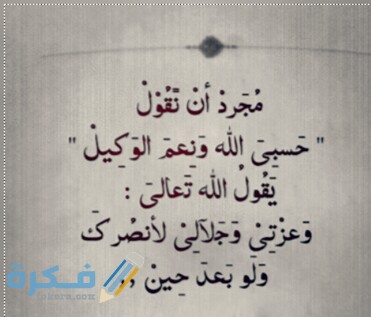 مُجَردْ أنْ تَقُوْلْ
" حَسبِيَ الله وَنِعمَ الوَكِيلْ "
يَقُولُ الله تَعالىَ :
وَعزْتِيْ وَجَلآلِيْ لأنصُركَ
وَلَو بَعدَ حِينْ ,,
فكرة